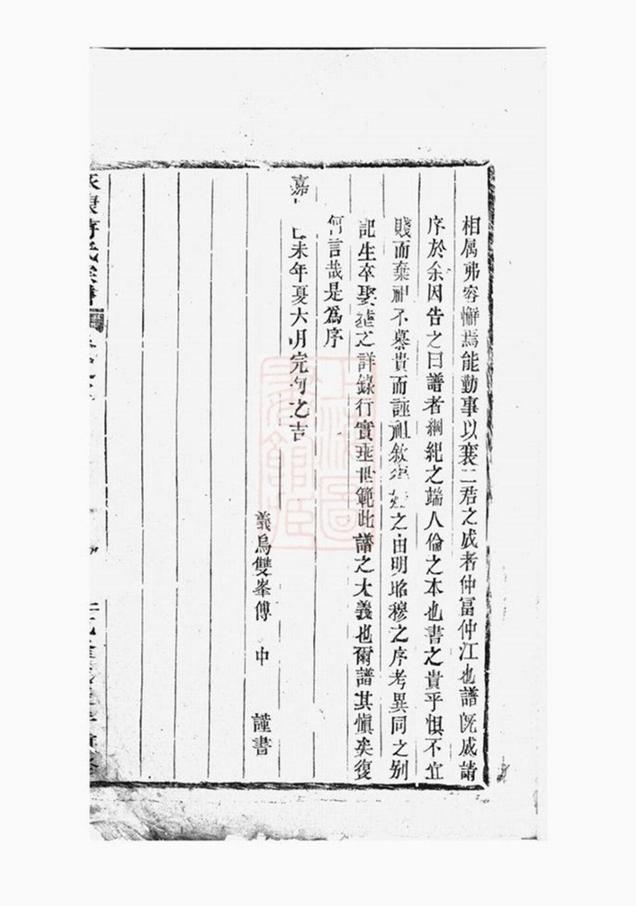 相属弗容懈焉能勤事以襄二君之成者仲富仲江也譜既成請
序於余因告之曰譜者綱紀之端人倫之本也書之貴乎慎不宜
賤而棄祖不慕貴而誣祖敘 之由明昭穆之序考異同之别
記生卒娶塟之詳錄行實垂世範此譜之大義也爾譜其慎矣復
何言哉是爲序
嘉 未年夏六月完旬之吉
義烏雙峯傅 中 謹書
宗譜